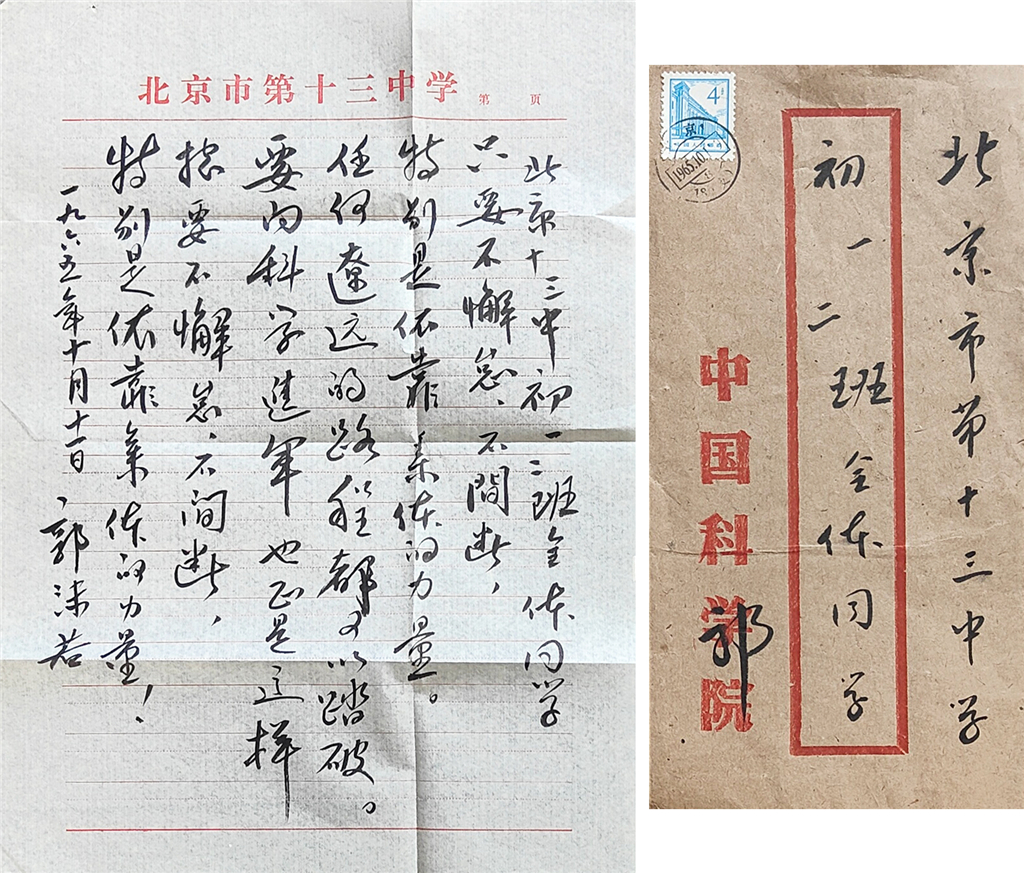 北京市第十三中学
第 页
北京十三中初一二班全体同学
只要不懈怠、不間断，
特别是依靠集体的力量。
任何遼远的路程都可以踏破。
要向科学進军也正是这样
捴要不懈怠、不间断，
特别是依靠集体的力量！
一九六五年十月十一日、郭沫若
4
京1
1965.10.1
北京市第十三中学
初一二班全体同学
中国科学院
郭